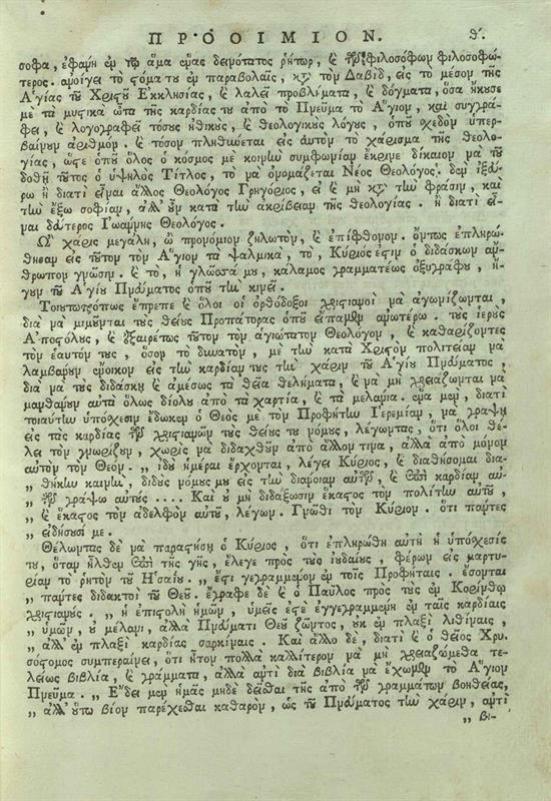 ΠΡΟΟΙΜΙΟΝ. θ΄.
σοφα, ἐφαίη ἐν τῷ ἅμα ἡμᾶς δεινότατος ῥήτωρ, & τῶν φιλοσόφων φιλοσοφώ-
τερος. ἀνοίγει τὸ στόμα του ἐν παραβολαῖς, κατὰ τὸν Δαβὶδ, εἰς τὸ μέσον τῆς
Ἁγίας τοῦ Χριστοῦ Ἐκκλησίας, & λαλεῖ προβλήματα, & δόγματα, ὅσα ἤκουσε
μὲ τὰ μυστικὰ ὦτα τῆς καρδίας του ἀπὸ τὸ Πνεῦμα τὸ Ἅγιον, καὶ συγγρά-
φει, & λογογραφεῖ τόσους ἠθικοὺς, & θεολογικοὺς λόγους, ὁποῦ σχεδὸν ὑπερ-
βαίνουν ἀριθμόν. & τόσον πληθύνεται εἰς αὐτὸν τὸ χάρισμα τῆς θεολο-
γίας, ὥστε ὁποῦ ὅλος ὁ κόσμος μὲ κοινὴν συμφωνίαν ἔκρινε δίκαιον νὰ τοῦ
δοθῇ τοῦτος ὁ ὑψηλὸς Τίτλος, τὸ νὰ ὀνομάζεται Νέος Θεολόγος. δὲν ἰξεύ-
ρω ἢ διατὶ εἶναι ἄλλος Θεολόγος Γρηγόριος, εἰ & μὴ κατὰ τὴν φράσιν, καὶ
τὴν ἔξω σοφίαν, ἀλλ' οὖν κατὰ τὴν ἀκρίβειαν τῆς θεολογίας. ἢ διατὶ εἶ-
ναι δεύτερος Ἰωάννης Θεολόγος.
Ὢ χάρις μεγάλη, ὢ προνόμιον ζηλωτὸν, & ἐπίφθονον. ὄντως ἐπληρώ-
θησαν εἰς τοῦτον τὸν Ἅγιον τὰ ψαλμικὰ, τὸ, Κύριός ἐστιν ὁ διδάσκων ἄν-
θρωπον γνῶσιν. & τὸ, ἡ γλῶσσά μου, κάλαμος γραμματέως ὀξυγράφου, ἤ-
γουν τοῦ Ἁγίου Πνεύματος ὁποῦ τὴν κινεῖ.
Τοιουτοτρόπως ἔπρεπε & ὅλοι οἱ ὀρθόδοξοι χριστιανοὶ νὰ ἀγωνίζωνται,
διὰ νὰ μιμοῦνται τοὺς θείους Προπάτορας ὁποῦ εἴπαμεν ἀνωτέρω. τοὺς ἱεροὺς
Ἀποστόλους, & ἐξαιρέτως τοῦτον τὸν ἁγιώτατον Θεολόγον, & καθαρίζοντες
τὸν ἑαυτόν τους, ὅσον τὸ δυνατὸν, μὲ τὴν κατὰ Χριστὸν πολιτείαν νὰ
λαμβάνουν ἔνοικον εἰς τὴν καρδίαν τους τὴν χάριν τοῦ Ἁγίου Πνεύματος,
διὰ νὰ τοὺς διδάσκῃ & ἀμέσως τὰ θεῖα θελήματα, & νὰ μὴ χρειάζωνται νὰ
μανθάνουν αὐτὰ ὅλως διόλου ἀπὸ τὰ χαρτία, & τὰ μελάνια. ἕνα μὲν, διατὶ
τοιαύτην ὑπόσχεσιν ἔδωκεν ὁ Θεὸς μὲ τὸν Προφήτην Ἱερεμίαν, νὰ γράψῃ
εἰς τὰς καρδίας τῶν χριστιανῶν τοὺς θείους του νόμους, λέγωντας, ὅτι ὅλοι θέ-
λει τὸν γνωρίζουν, χωρὶς νὰ διδαχθοῦν ἀπὸ ἄλλον τινα, ἀλλὰ ἀπὸ μόνον
αὐτὸν τὸν Θεόν. „ ἰδοὺ ἡμέραι ἔρχονται, λέγει Κύριος, & διαθήσομαι δια-
„ θήκην καινὴν, διδοὺς νόμους μου εἰς τὴν διάνοιαν αὐτῶν, & ἐπὶ καρδίαν αὐ-
„ τῶν γράψω αὐτούς .... Καὶ οὐ μὴ διδάξωσιν ἕκαστος τὸν πολίτην αὐτοῦ,
„ & ἕκαστος τὸν ἀδελφὸν αὐτοῦ, λέγων. Γνῶθι τὸν Κύριον. ὅτι πάντες
„ εἰδήσουσί με.
Θέλωντας δὲ νὰ παραστήσῃ ὁ Κύριος, ὅτι ἐπληρώθη αὐτὴ ἡ ὑπόσχεσίς
του, ὅταν ἦλθεν ἐπὶ τῆς γῆς, ἔλεγε πρὸς τοὺς ἰουδαίους, φέρων εἰς μαρτυ-
ρίαν τὸ ῥητὸν τοῦ Ἡσαΐου. „ ἔστι γεγραμμένον ἐν τοῖς Προφήταις. ἔσονται
„ πάντες διδακτοὶ τοῦ Θεοῦ. ἔγραφε δὲ & ὁ Παῦλος πρὸς τοὺς ἐν Κορίνθῳ
χριστιανούς. „ ἡ ἐπιστολὴ ἡμῶν, ὑμεῖς ἐστὲ ἐγγεγραμμένη ἐν ταῖς καρδίαις
„ ὑμῶν, οὐ μέλανι, ἀλλὰ Πνεύματι Θεοῦ ζῶντος, οὐκ ἐν πλαξὶ λιθίναις,
„ ἀλλ' ἐν πλαξὶ καρδίας σαρκίναις. Καὶ ἄλλο δὲ, διατὶ & ὁ θεῖος Χρυ-
σόστομος συμπεραίνει, ὅτι ἦτον πολλὰ καλλίτερον νὰ μὴ χρειαζώμεθα τε-
λείως βιβλία, & γράμματα, ἀλλὰ ἀντὶ διὰ βιβλία νὰ ἔχωμεν τὸ Ἅγιον
Πνεῦμα. „ Ἔδει μὲν ἡμᾶς μηδὲ δεῖσθαι τῆς ἀπὸ τῶν γραμμάτων βοηθείας,
„ ἀλλ' οὕτω βίον παρέχεσθαι καθαρὸν, ὡς τοῦ Πνεύματος τὴν χάριν, ἀντὶ
„ βι-